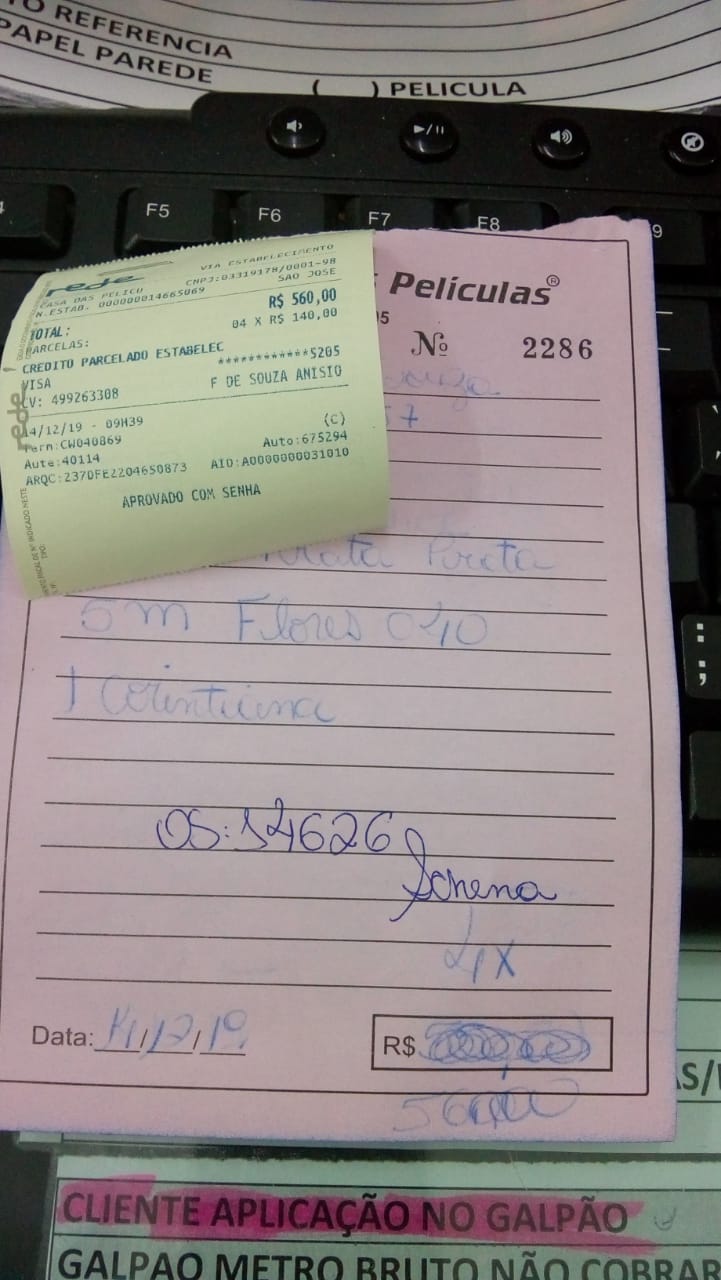 TO REFERENCIA
PAPEL PAREDE
( ) PELICULA
F5
F6
F7
F8
9
rede
VIA ESTABELECIMENTO
CASA DAS PELICU CNPJ:03319178/0001-98
N.ESTAB. 000000014665069 SAO JOSE
TOTAL: R$ 560,00
PARCELAS: 04 X R$ 140,00
CREDITO PARCELADO ESTABELEC
VISA ************5205
CV: 499263308 F DE SOUZA ANISIO
4/12/19 - 09H39 (C)
Term:CW040869 Auto:675294
Aute:40114
ARQC:237DFE2204650873 AID:A0000000031010
APROVADO COM SENHA
rede
s Películas®
05
Nº 2286
57
Preta
5m Flores 040
1 Corintiana
OS: 14626
4x
Data: 14/12/19 R$
560,00
CLIENTE APLICAÇÃO NO GALPÃO
GALPAO METRO BRUTO NÃO COBRAR